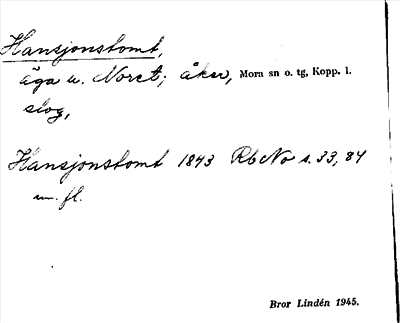 Hansjonstomt,
äga u. Noret; åker, Mora sn o. tg, Kopp. l.
slog,
Hansjonstomt 1843 RbNo s. 33, 84
m. fl.
Bror Lindén 1945.